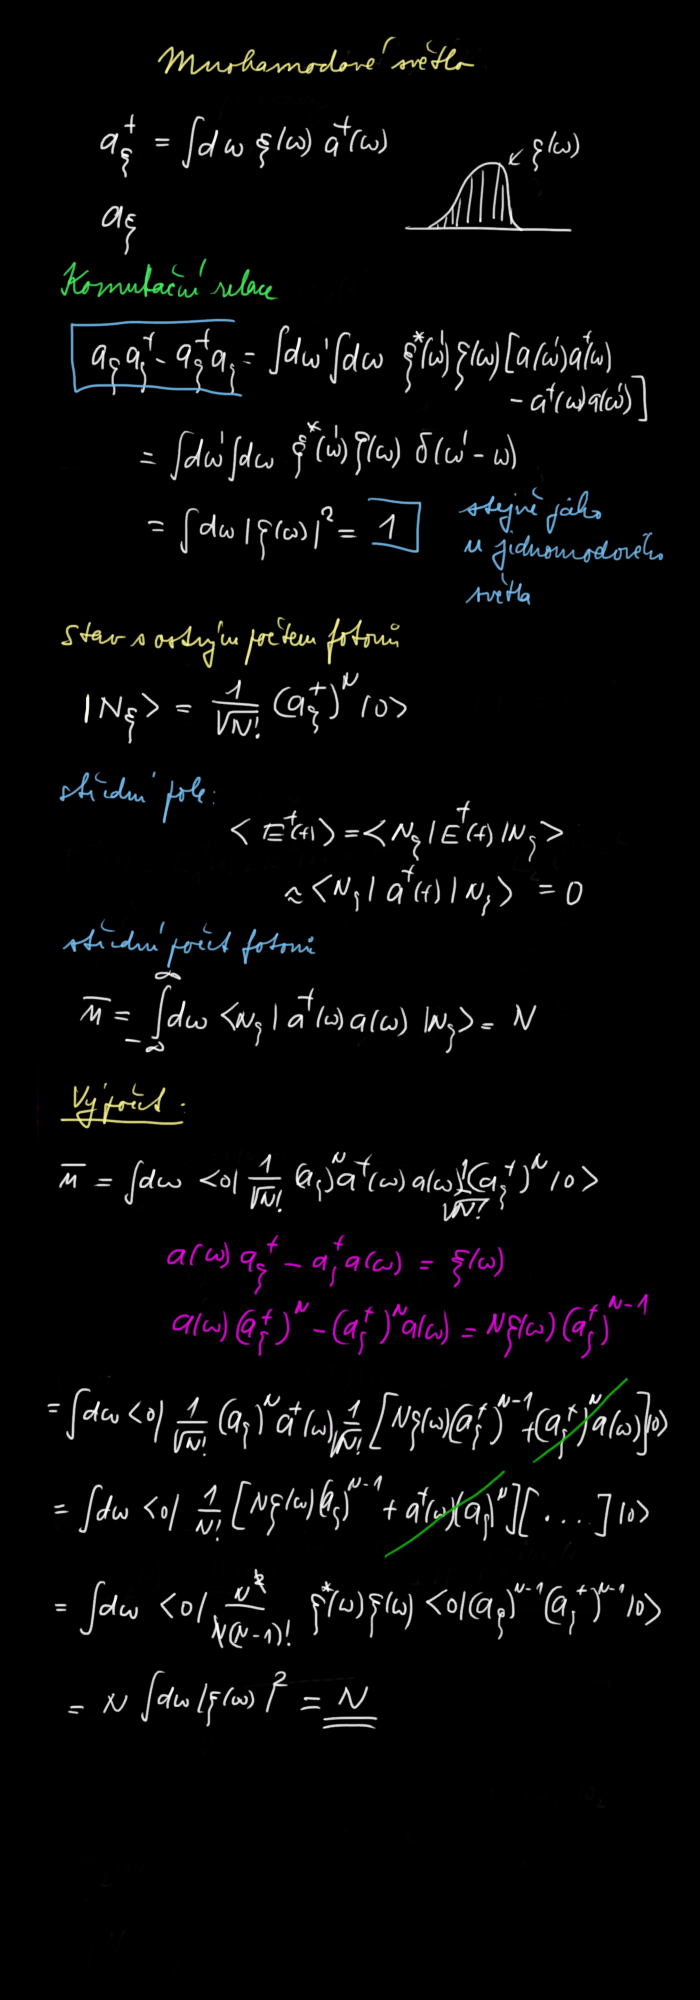 Mnohamodové světlo
a_ξ^† = ∫dω ξ(ω) a^†(ω)
ξ(ω)
a_ξ
Komutační relace
a_ξ a_ξ^† - a_ξ^† a_ξ = ∫dω' ∫dω ξ*(ω') ξ(ω) [a(ω') a^†(ω)
- a^†(ω) a(ω')]
= ∫dω' ∫dω ξ*(ω') ξ(ω) δ(ω' - ω)
= ∫dω |ξ(ω)|² = 1
stejně jako
u jednomodového
světla
Stav s ostrým počtem fotonů
|N_ξ> = 1/√N! (a_ξ^†)^N |0>
střední pole:
<E^+(t)> = <N_ξ| E^+(t) |N_ξ>
≈ <N_ξ| a^†(t) |N_ξ> = 0
střední počet fotonů
n̄ = ∫_{-∞}^{∞} dω <N_ξ| a^†(ω) a(ω) |N_ξ> = N
Výpočet:
n̄ = ∫dω <0| 1/√N! (a_ξ)^N a^†(ω) a(ω) 1/√N! (a_ξ^†)^N |0>
a(ω) a_ξ^† - a_ξ^† a(ω) = ξ(ω)
a(ω) (a_ξ^†)^N - (a_ξ^†)^N a(ω) = Nξ(ω) (a_ξ^†)^{N-1}
= ∫dω <0| 1/√N! (a_ξ)^N a^†(ω) 1/√N! [Nξ(ω) (a_ξ^†)^{N-1} + (a_ξ^†)^N a(ω)] |0>
= ∫dω <0| 1/N! [Nξ(ω) (a_ξ)^{N-1} + a^†(ω) (a_ξ)^N] [....] |0>
= ∫dω <0| N²/N(N-1)! ξ*(ω) ξ(ω) <0| (a_ξ)^{N-1} (a_ξ^†)^{N-1} |0>
= N ∫dω |ξ(ω)|² = N